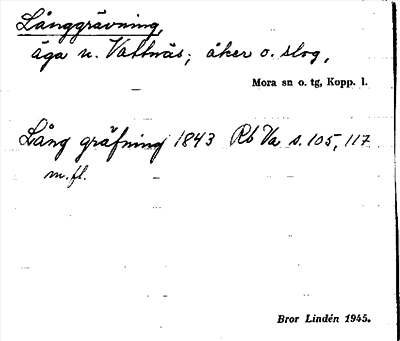 Långgrävning,
äga u. Vattnäs; åker o. slog,
Mora sn o. tg, Kopp. l.
Lång gräfning 1843 Rb Va s. 105, 117
m.fl.
Bror Lindén 1945.